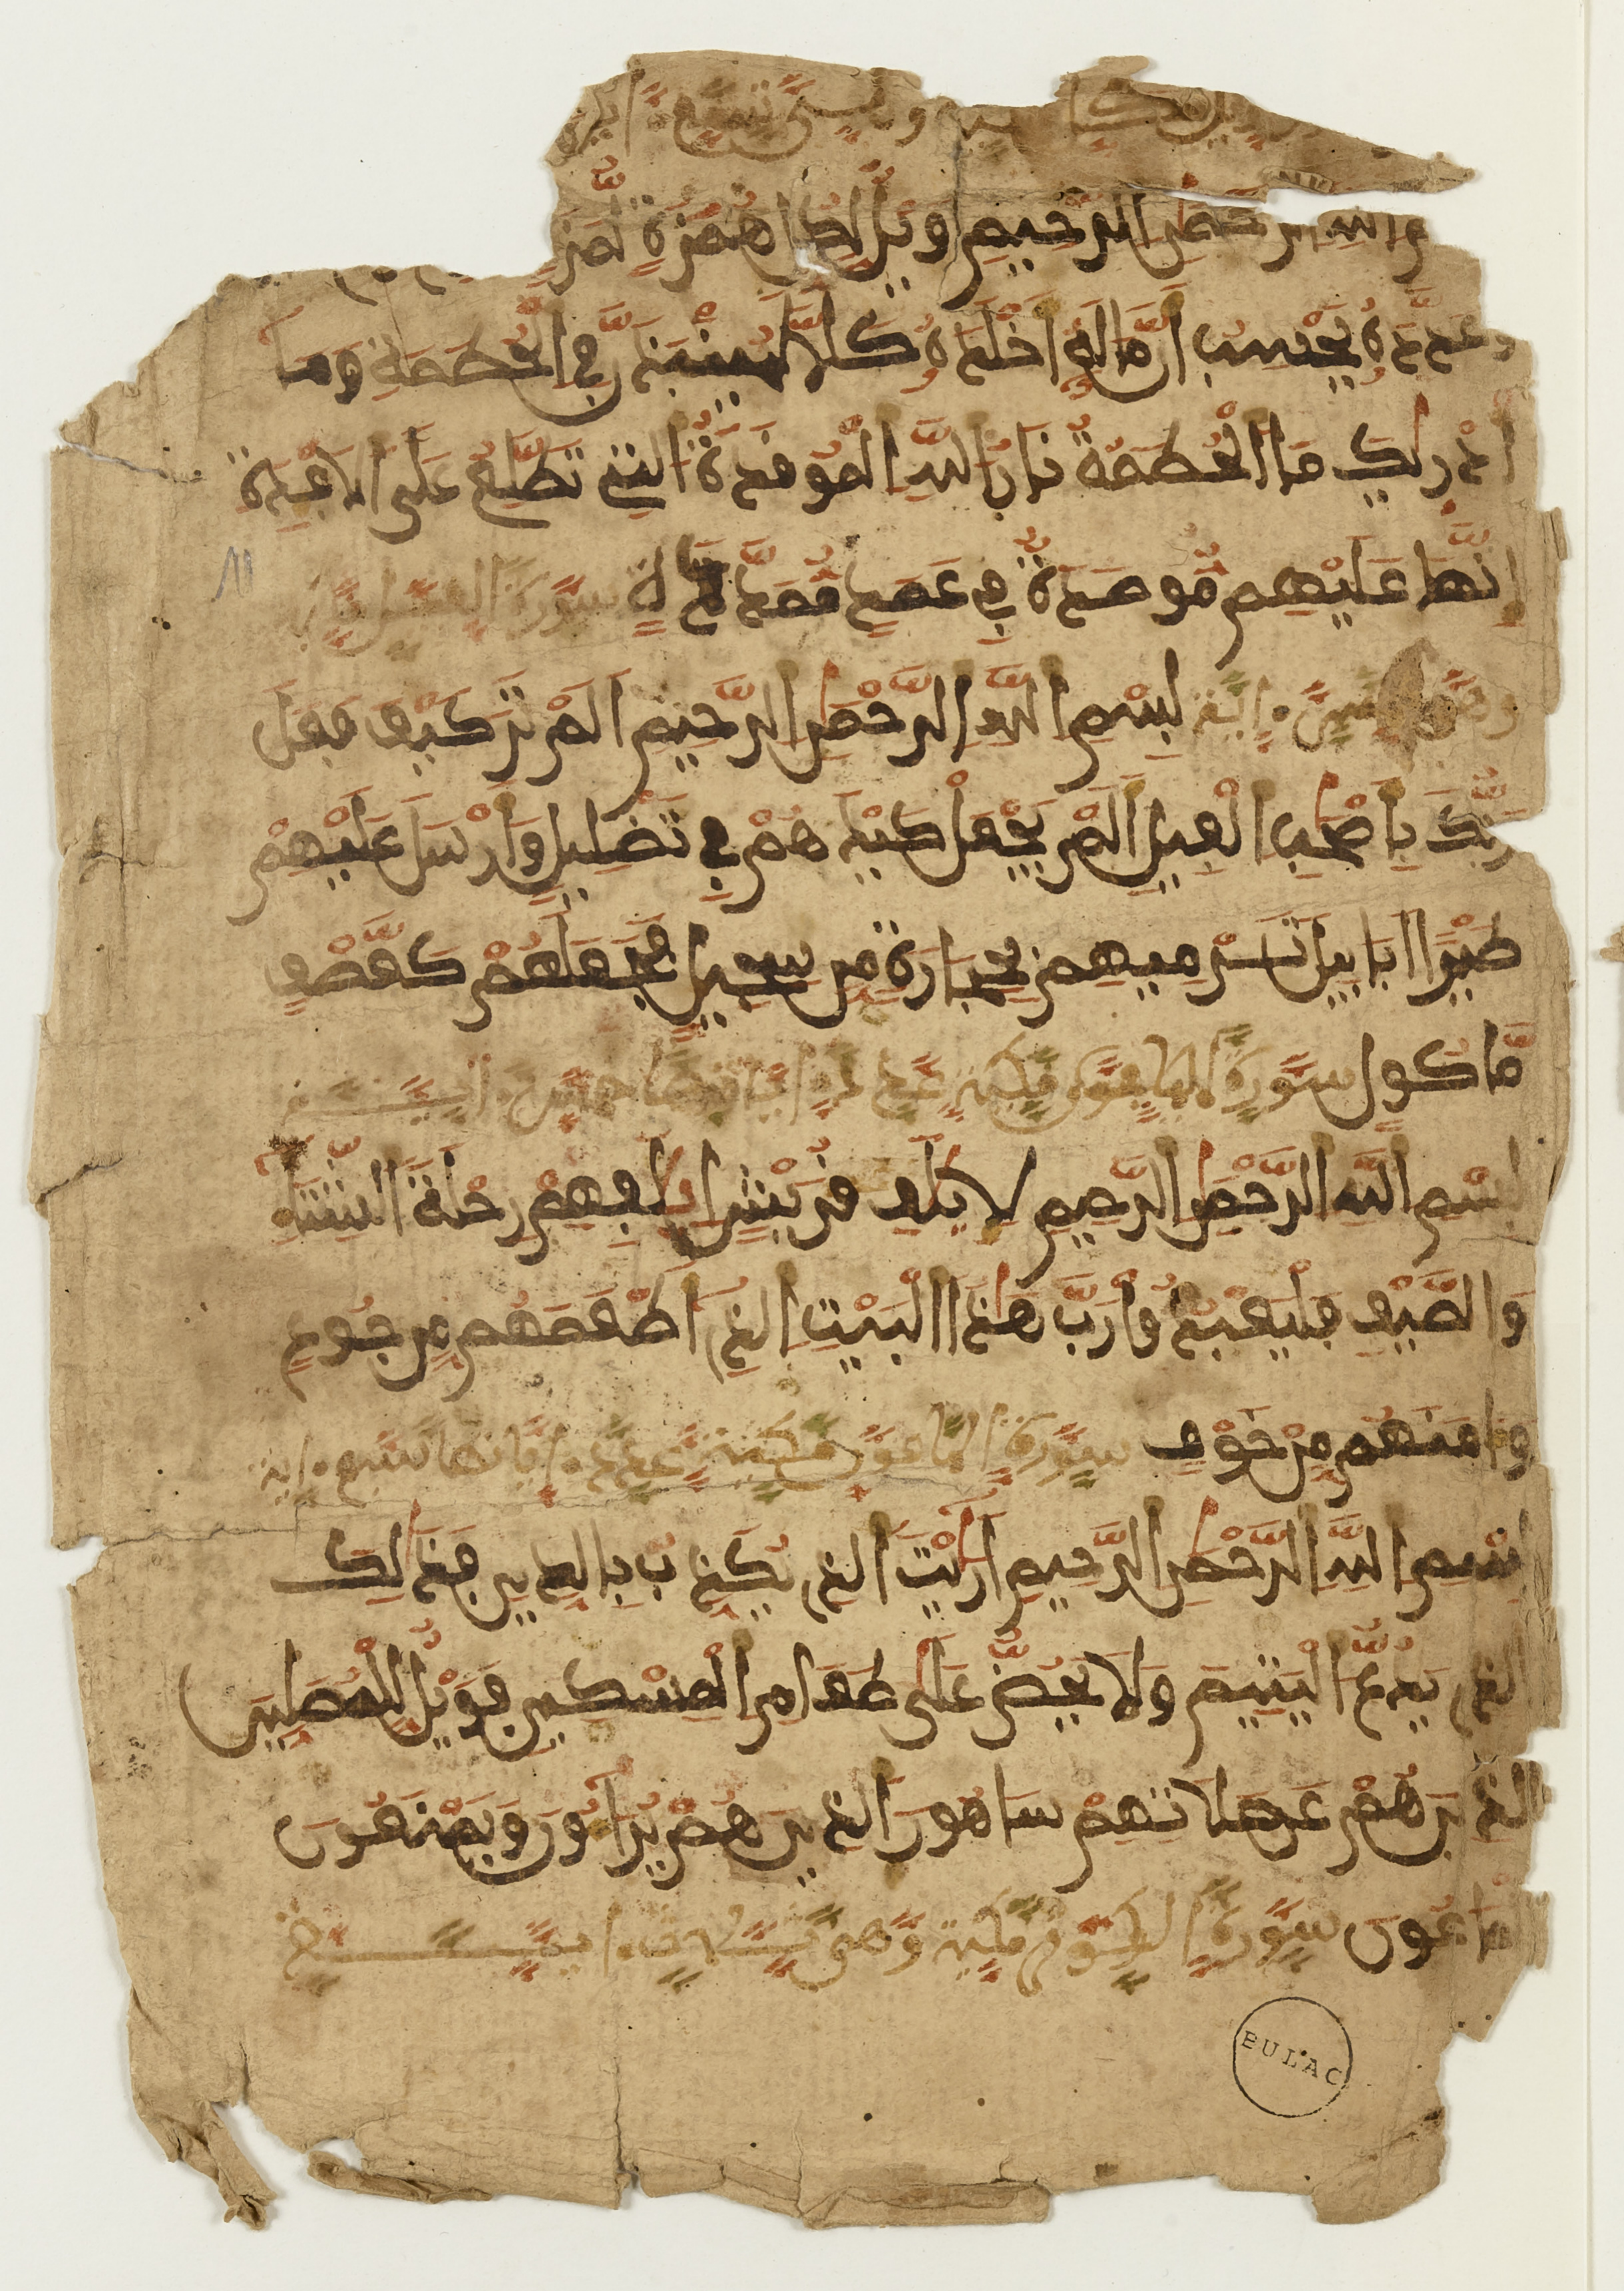 وهي تسع ءاية
الرحمن الرحيم ويل لكل همزة لمزة
وعدده يحسب أن ماله أخلده كلا لينبذن في الحطمة وما
أدريك ما الحطمة نار الله الموقدة التي تطلع على الأفئدة
إنها عليهم موصدة في عمد ممددة سورة الفيل
وهي خمس ءاية بسم الله الرحمن الرحيم ألم تر كيف فعل
ربك بأصحب الفيل ألم يجعل كيدهم في تضليل وأرسل عليهم
طيرا أبابيل ترميهم بحجارة من سجيل فجعلهم كعصف
مأكول سورة
بسم الله الرحمن الرحيم لإيلف قريش إيلفهم رحلة الشتاء
والصيف فليعبدوا رب هذا البيت الذي أطعمهم من جوع
وءامنهم من خوف سورة الماعون مكية عدد ءاياتها سبع ءاية
بسم الله الرحمن الرحيم أريت الذي يكذب بالدين فذلك
الذي يدع اليتيم ولا يحض على طعام المسكين فويل للمصلين
الذين هم عن صلاتهم ساهون الذين هم يراءون ويمنعون
الماعون سورة الكوثر مكية وهي ثلاث ءاية
BULAC